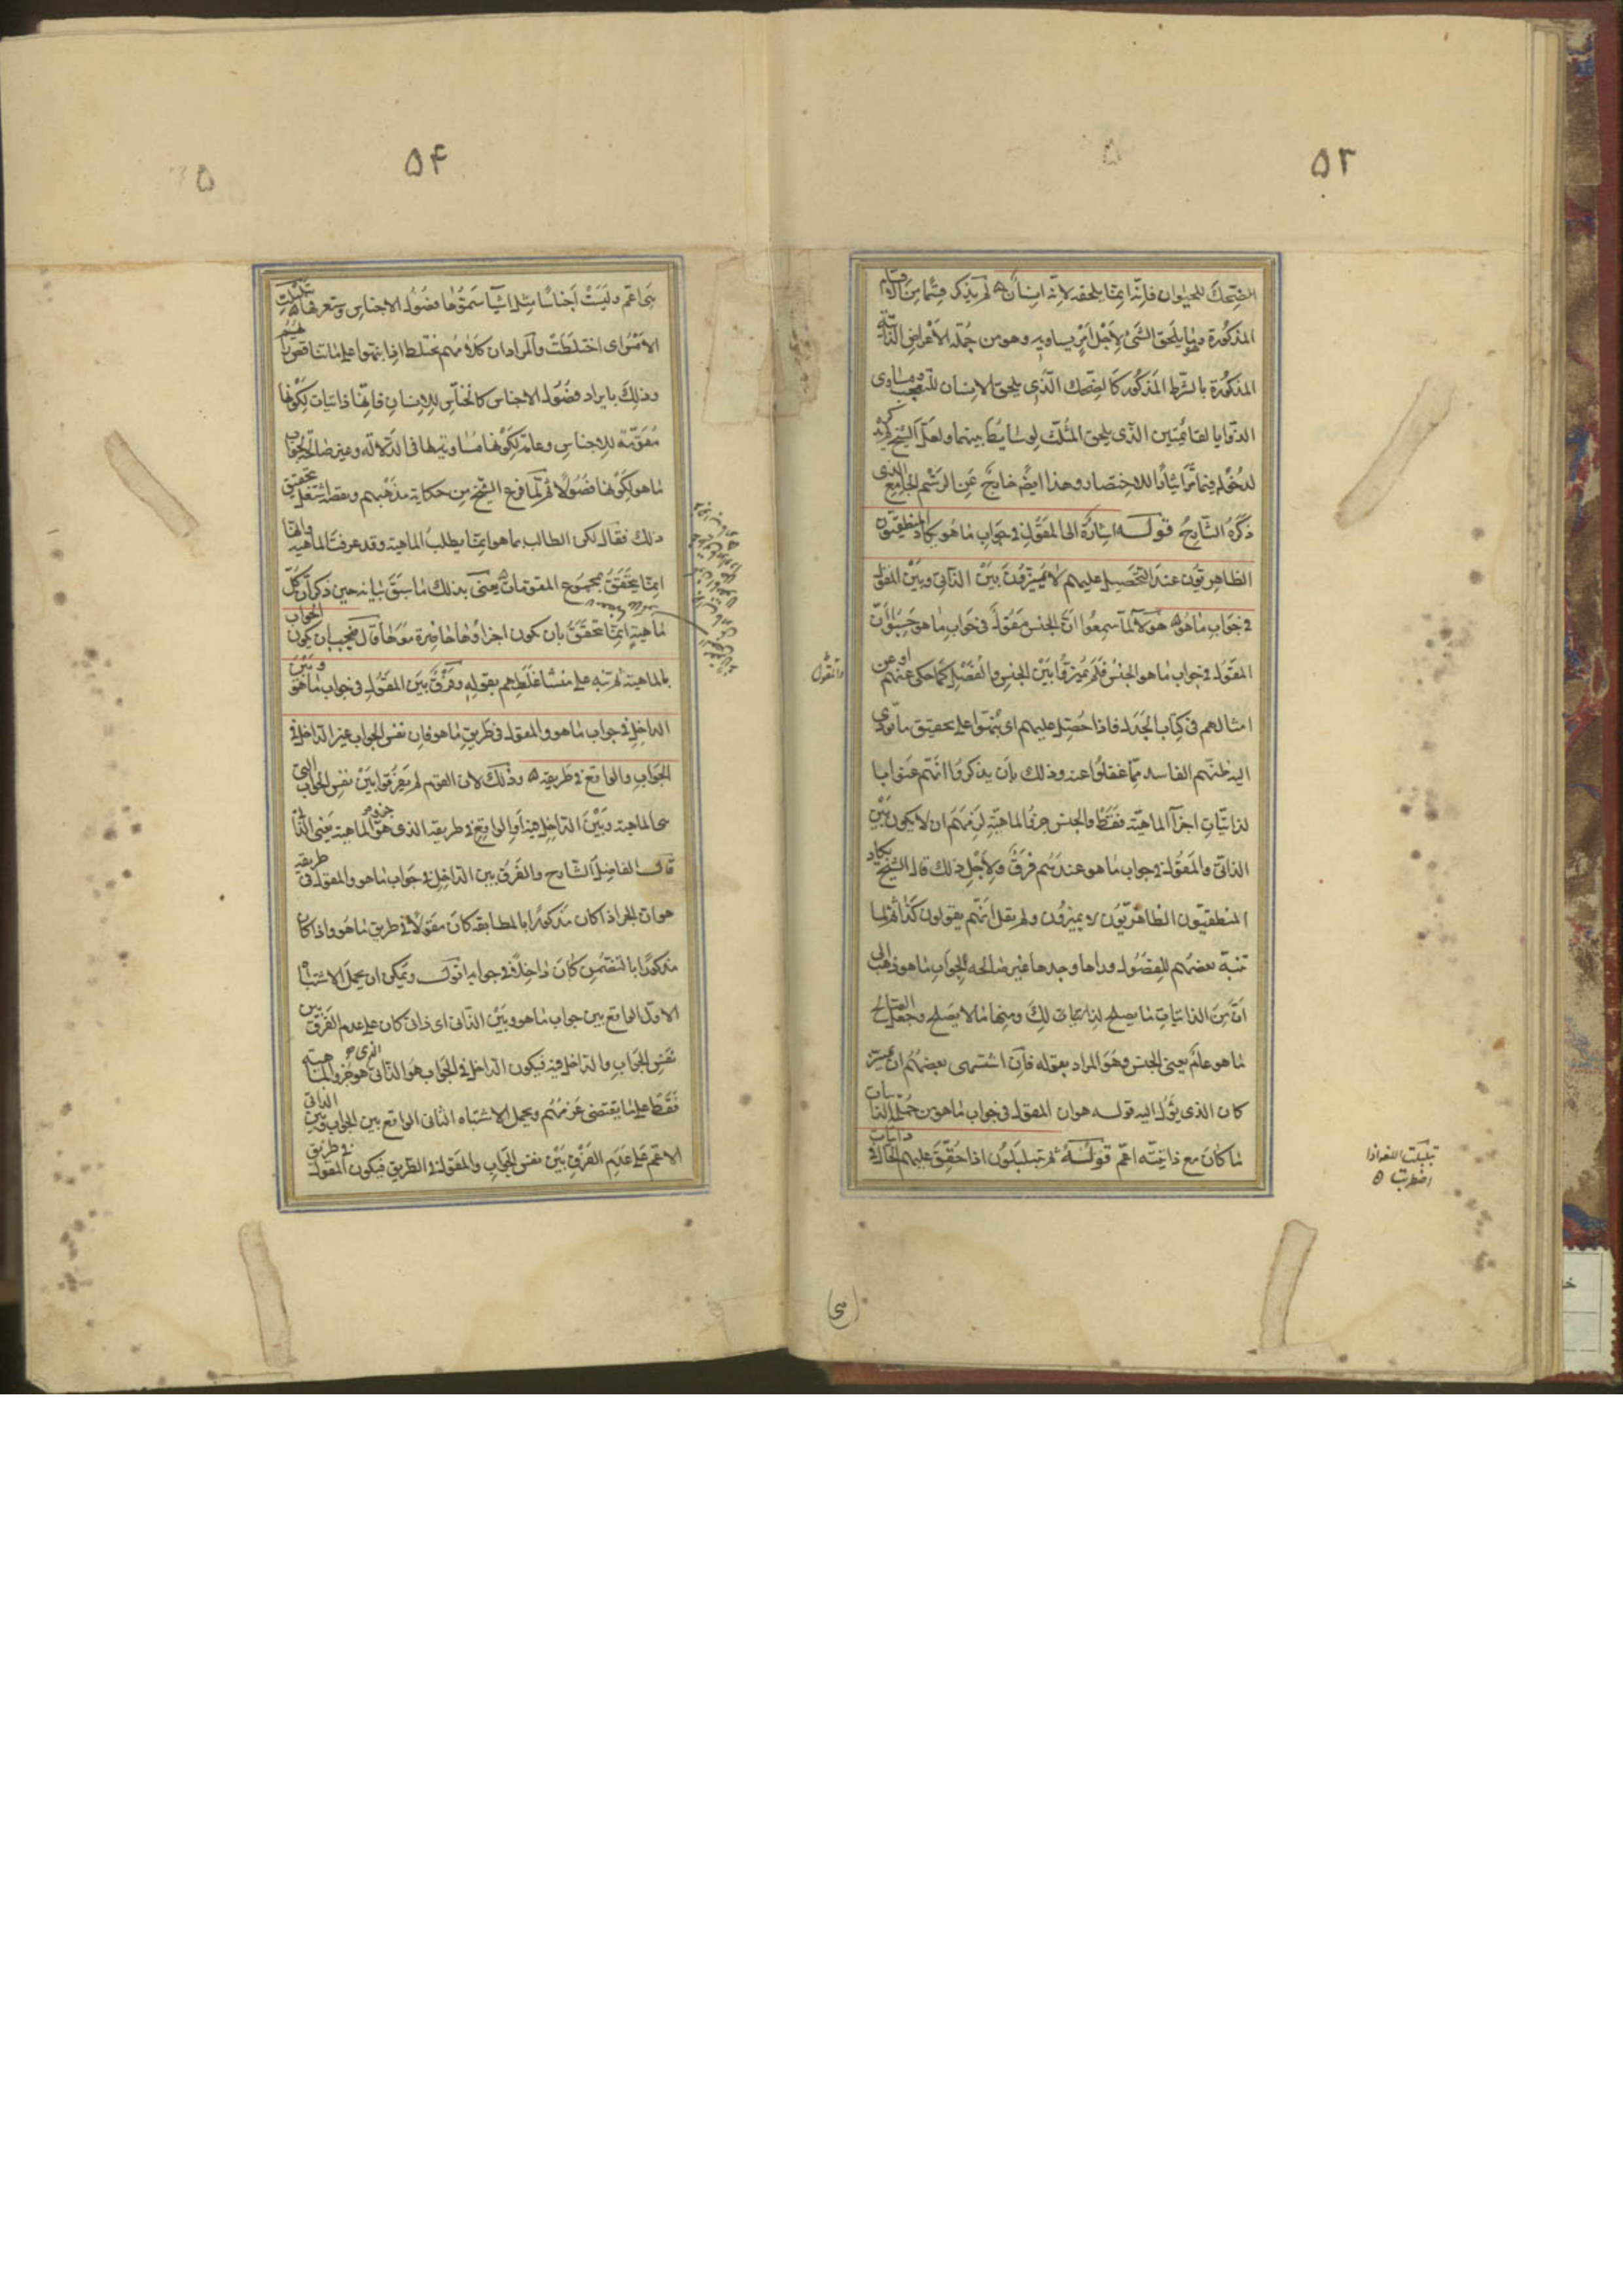 ۵۳
الضحك للحيوان فانه انما يلحقه لانه انسان لم يذكر قسما من الاقسام
المذكورة وهو ما يلحق الشئ لاجل امر يساويه وهو من جملة الاعراض الذاتية
المذكورة بالشرط المذكور كالضحك الذى يلحق الانسان للتعجب ومساوى
الزوايا لقائمتين الذى يلحق المثلث لوسايط بينهما ولعل الشيخ لم يذكره
لدخوله فيما مر ايثارا للاختصار وهذا ايضا خارج عن الرسم الجامع الذى
ذكره الشارح قوله اشارة الى المقول فى جواب ما هو يكاد المنطقيون
الظاهريون عند التحصيل عليهم لا يميزون بين الذاتى وبين المقول
فى جواب ما هو هؤلاء لما سمعوا ان الجنس مقول فى جواب ما هو حسبوا ان
المقول فى جواب ما هو الجنس فلم يميزوا بين الجنس والفصل كما حكى عنهم او عن
امثالهم فى كتاب الجدل فاذا حصل عليهم اى نبهوا على تحقيق ما يؤدى
اليه ظنهم الفاسد مما غفلوا عنه وذلك بان يذكروا انهم عنوا با
لذاتيات اجزاء الماهية فقط والجنس جزء الماهية لزمهم ان لا يكون بين
الذاتى والمقول فى جواب ما هو عندهم فرق ولاجل ذلك قال الشيخ يكاد
المنطقيون الظاهريون لا يميزون ولم يقل انهم يقولون كذا ثم لما
تنبه بعضهم للفصول وراها وجدها غير صالحة لجواب ما هو ذهب الى
ان من الذاتيات ما يصلح لذلك ومنها ما لا يصلح وجعل الصالح
ما هو عام يعنى الجنس وهو المراد بقوله فان اشتهى بعضهم ان يميز
كان الذى يؤل اليه قوله هو ان المقول فى جواب ما هو من جملة الذاتيات
ما كان مع ذاتيته اعم قوله ثم يتبلبلون اذا حقق عليهم الحال فى ذاتيات
والمقول
تبلبلت الالسن اذا
اضطربت
۵۴
هى اعم وليست اجناسا مثل اشياء سموها فصول الاجناس وستعرفها تبلبلت
الالسن اى اختلطت والمراد ان كلامهم يختلط اذا نبهوا على ما يناقض رأيهم
وذلك بايراد فصول الاجناس كالحساس للانسان فانها ذاتيات لكونها
مقومة للاجناس وعامة لكونها مساوية لها فى الدلالة وغير صالحة لجواب
ما هو لكونها فصولا ثم لما فرغ الشيخ من حكاية مذهبهم ونقضه اشتغل بتحقيق
ذلك فقال لكن الطالب بما هو انما يطلب الماهية وقد عرفت الماهية وانها
انما يتحقق بمجموع المقومات يعنى بذلك ما سبق بيانه حين ذكر ان كل
ماهية انما تتحقق بان يكون اجزاؤها حاضرة معها قال فيجب ان يكون الجواب
بالماهية ثم تنبه على منشا غلطهم بقوله وفرق بين المقول فى جواب ما هو وبين
الداخل فى جواب ما هو والمقول فى طريق ما هو فان نفس الجواب غير الداخل فى
الجواب والواقع فى طريقه وذلك لان القوم لم يفرقوا بين نفس الجواب التى
هى الماهية وبين الداخل فيها والواقع فى طريقه الذى هو جزء الماهية يعنى الذاتى
قال الفاضل الشارح والفرق بين الداخل فى جواب ما هو والمقول فى طريقه
هو ان الجزء اذا كان مذكورا بالمطابقة كان مقولا فى طريق ما هو واذا كان
مذكورا بالتضمن كان داخلا فى جوابه اقول ويمكن ان يحمل الاشتباه
الاول الواقع بين جواب ما هو وبين الذاتى اى ذاتى كان على عدم الفرق بين
نفس الجواب والداخل فيه فيكون الداخل فى الجواب هو الذاتى الذى هو جزء الماهية
فقط على ما يقتضى عرفهم ويحمل الاشتباه الثانى الواقع بين الجواب وبين الذاتى
الاعم على عدم الفرق بين نفس الجواب والمقول فى الطريق فيكون المقول فى طريق